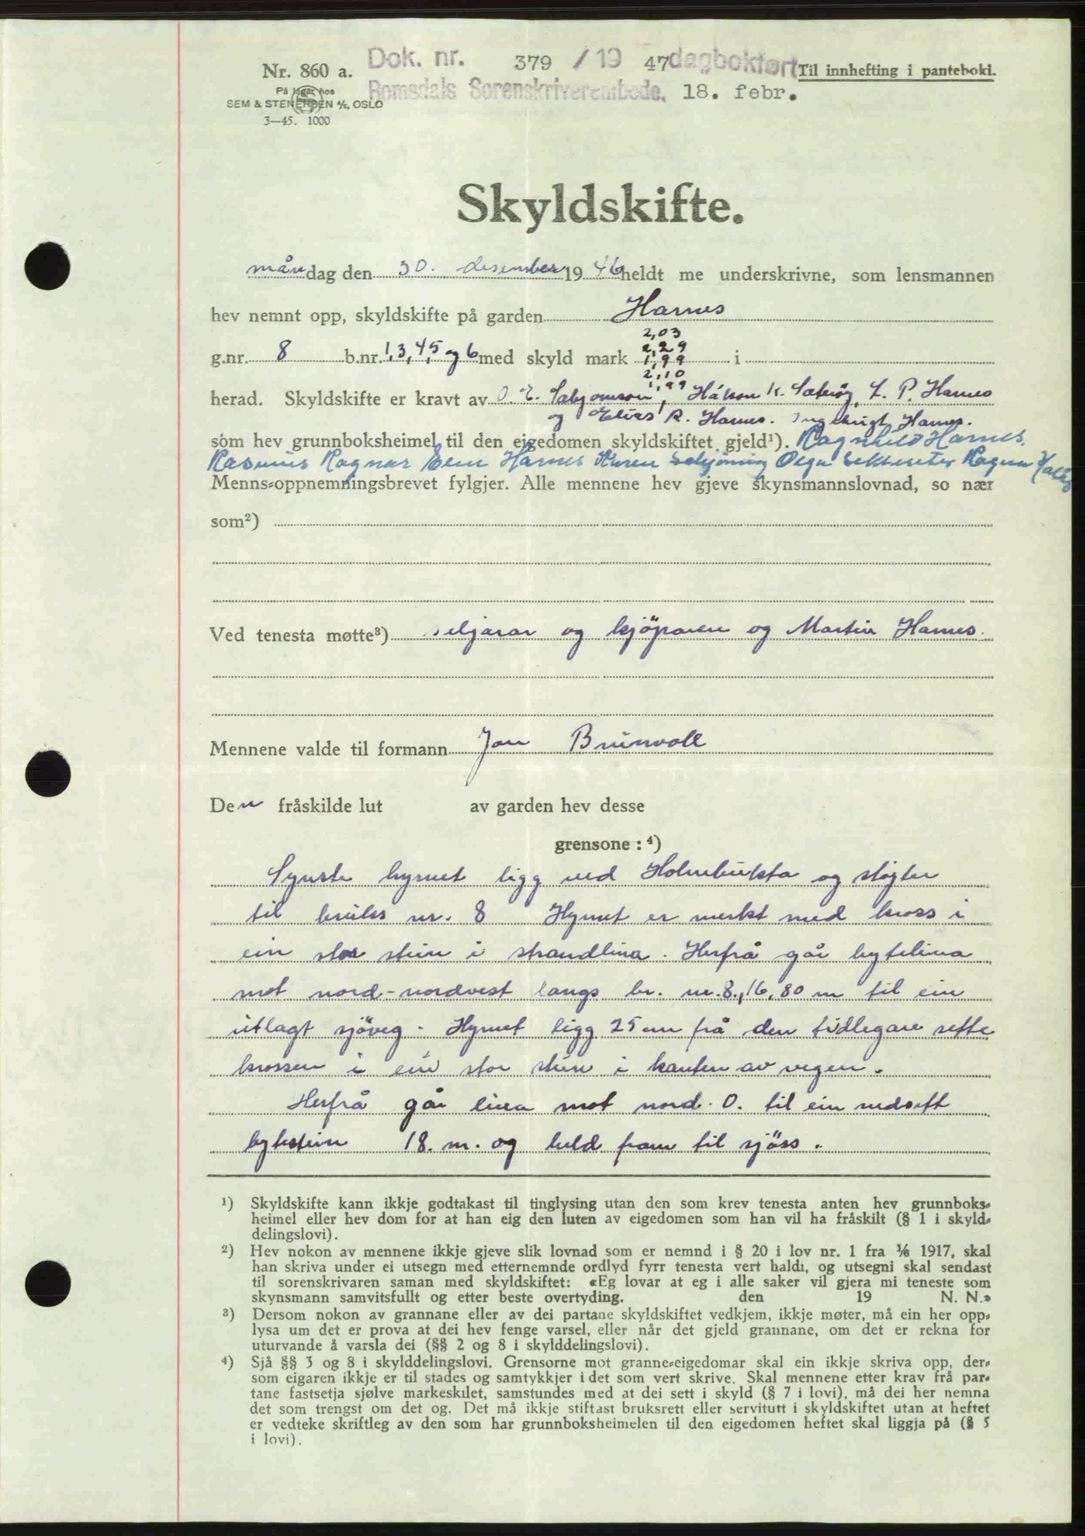 Nr. 860 a.
Dok. nr. 379 / 19 47 dagbokført
Til innhefting i panteboki.
På lager hos
SEM & STENERSEN A/S, OSLO
Romsdals Sorenskriverembede. 18. febr.
3—45. 1000
Skyldskifte.
måndag den 30. desember 19 46 heldt me underskrivne, som lensmannen
hev nemnt opp, skyldskifte på garden Harnes
2,03
g.nr. 8 b.nr. 1,3,4,5, og 6 med skyld mark 2,29 1,99 i
2,10
1,99
herad. Skyldskifte er kravt av O. E. Håkon K. L. P. Harnes
og Elias R. Harnes. Ingebrigt Harnes.
som hev grunnboksheimel til den eigedomen skyldskiftet gjeld¹). Ragnhild Harnes.
Rasmus Ragnar Harnes Olga Ragna
Menns-oppnemningsbrevet fylgjer. Alle mennene hev gjeve skynsmannslovnad, so nær
som²)
Ved tenesta møtte³) seljarar og kjöparen og Martin Harnes.
Mennene valde til formann Jon Brunvoll
Den fråskilde lut av garden hev desse
grensone : ⁴)
Synste hyrnet ligg ved Holmbukta og støyter
til bruks nr. 8 Hyrnet er merkt med kross i
ein stor stein i strandlina. Herfrå går bytelina
mot nord-nordvest langs br. nr. 8, 16,80 m til ein
utlagt sjöveg. Hyrnet ligg 25 cm frå den tidlegare sette
krossen i ein stor stein i kanten av vegen.
Herfrå går lina mot nord. O. til ein nedsett
bytestein 18. m. og beld fram til sjöss.
¹) Skyldskifte kann ikkje godtakast til tinglysing utan den som krev tenesta anten hev grunnboks-
heimel eller hev dom for at han eig den luten av eigedomen som han vil ha fråskilt (§ 1 i skyld-
delingslovi).
²) Hev nokon av mennene ikkje gjeve slik lovnad som er nemnd i § 20 i lov nr. 1 fra ⅙ 1917, skal
han skriva under ei utsegn med etternemnde ordlyd fyrr tenesta vert haldi, og utsegni skal sendast
til sorenskrivaren saman med skyldskiftet: «Eg lovar at eg i alle saker vil gjera mi teneste som
skynsmann samvitsfullt og etter beste overtyding. den 19 N. N.»
³) Dersom nokon av grannane eller av dei partane skyldskiftet vedkjem, ikkje møter, må ein her opp-
lysa um det er prova at dei hev fenge varsel, eller når det gjeld grannane, om det er rekna for
uturvande å varsla dei (§§ 2 og 8 i skylddelingslovi).
⁴) Sjå §§ 3 og 8 i skylddelingslovi. Grensorne mot granne-eigedomar skal ein ikkje skriva opp, der-
som eigaren ikkje er til stades og samtykkjer i det som vert skrive. Skal mennene etter krav frå par-
tane fastsetja sjølve markeskilet, samstundes med at dei sett i skyld (§ 7 i lovi), må dei her nemna
det som trengst om det og. Det må ikkje stiftast bruksrett eller servitutt i skyldskiftet utan at heftet
er vedteke skriftleg av den som har grunnboksheimelen til den eigedomen heftet skal liggja på (§ 5
i lovi).